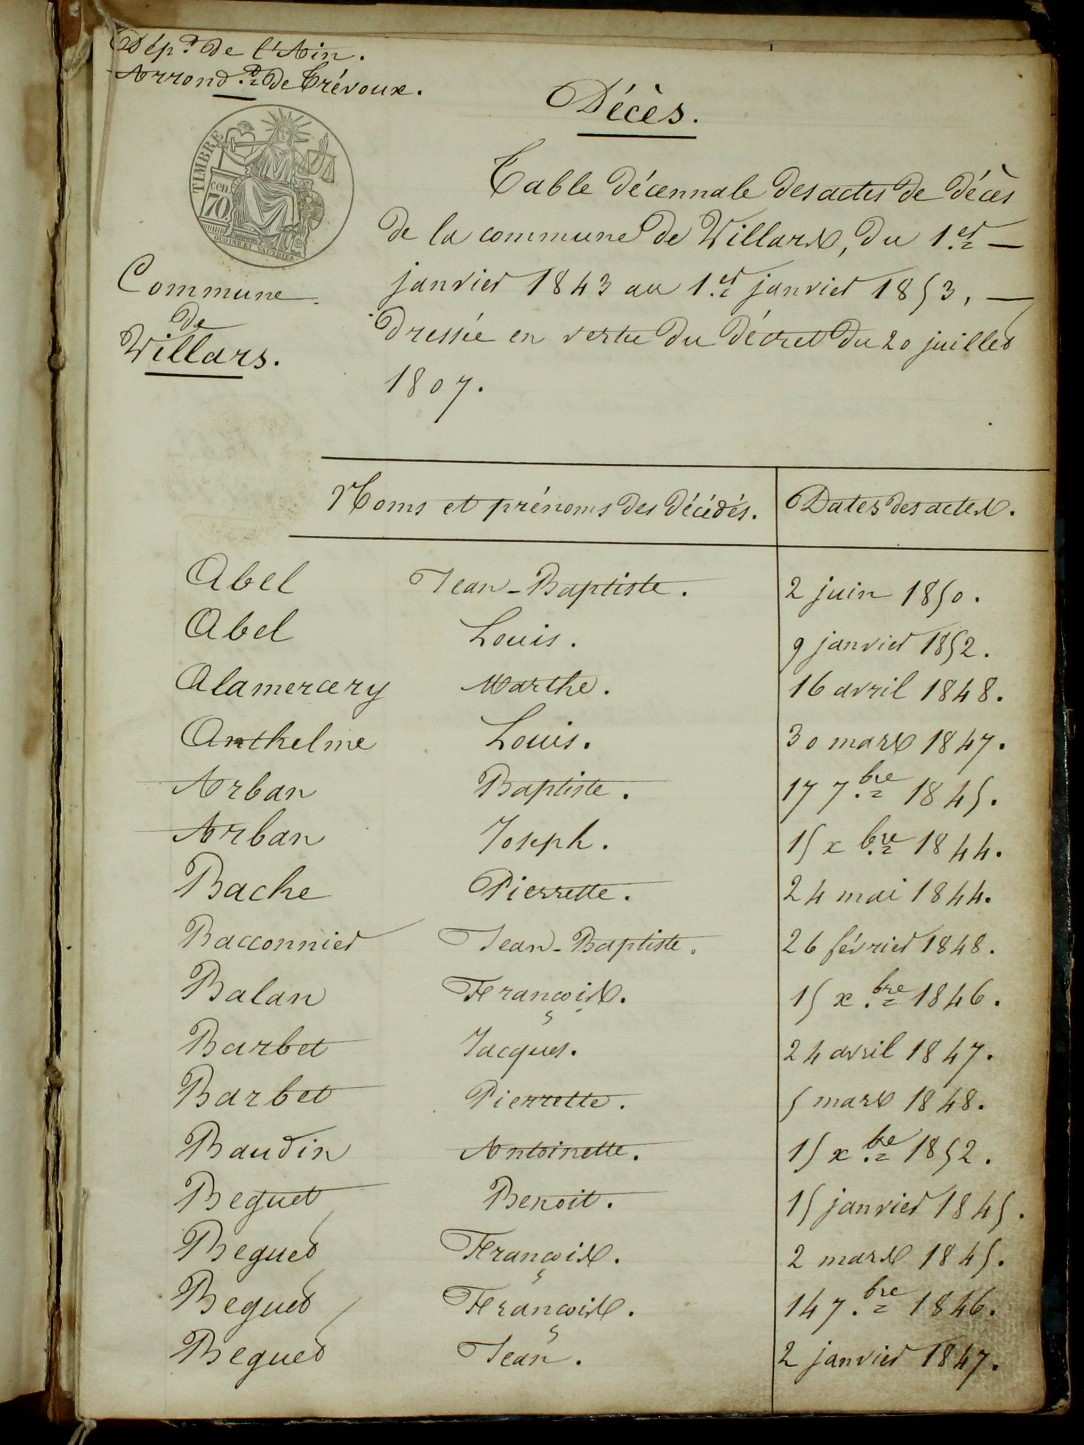 Dép.t de l'Ain.
Arrond.t de Trévoux.
Décès.
TIMBRE
70 cen
Table décennale des actes de décès
de la commune de Villars, du 1.er —
janvier 1843 au 1.er janvier 1853, —
dressée en vertu du décret du 20 juillet
1807.
Commune
de
Villars.
Noms et prénoms des décédés. Dates des actes.
Abel Jean-Baptiste. 2 juin 1850.
Abel Louis. 9 janvier 1852.
Alamercery Marthe. 16 avril 1848.
Anthelme Louis. 30 mars 1847.
Arban Baptiste. 17 7.bre 1845.
Arban Joseph. 15 x bre 1844.
Bache Pierrette. 24 mai 1844.
Bacconnier Jean-Baptiste. 26 février 1848.
Balan François. 15 x.bre 1846.
Barbet Jacques. 24 avril 1847.
Barbet Pierrette. 5 mars 1848.
Baudin Antoinette. 15 x.bre 1852.
Beguet Benoit. 15 janvier 1845.
Beguet François. 2 mars 1845.
Beguet François. 14 7.bre 1846.
Beguet Jean. 2 janvier 1847.